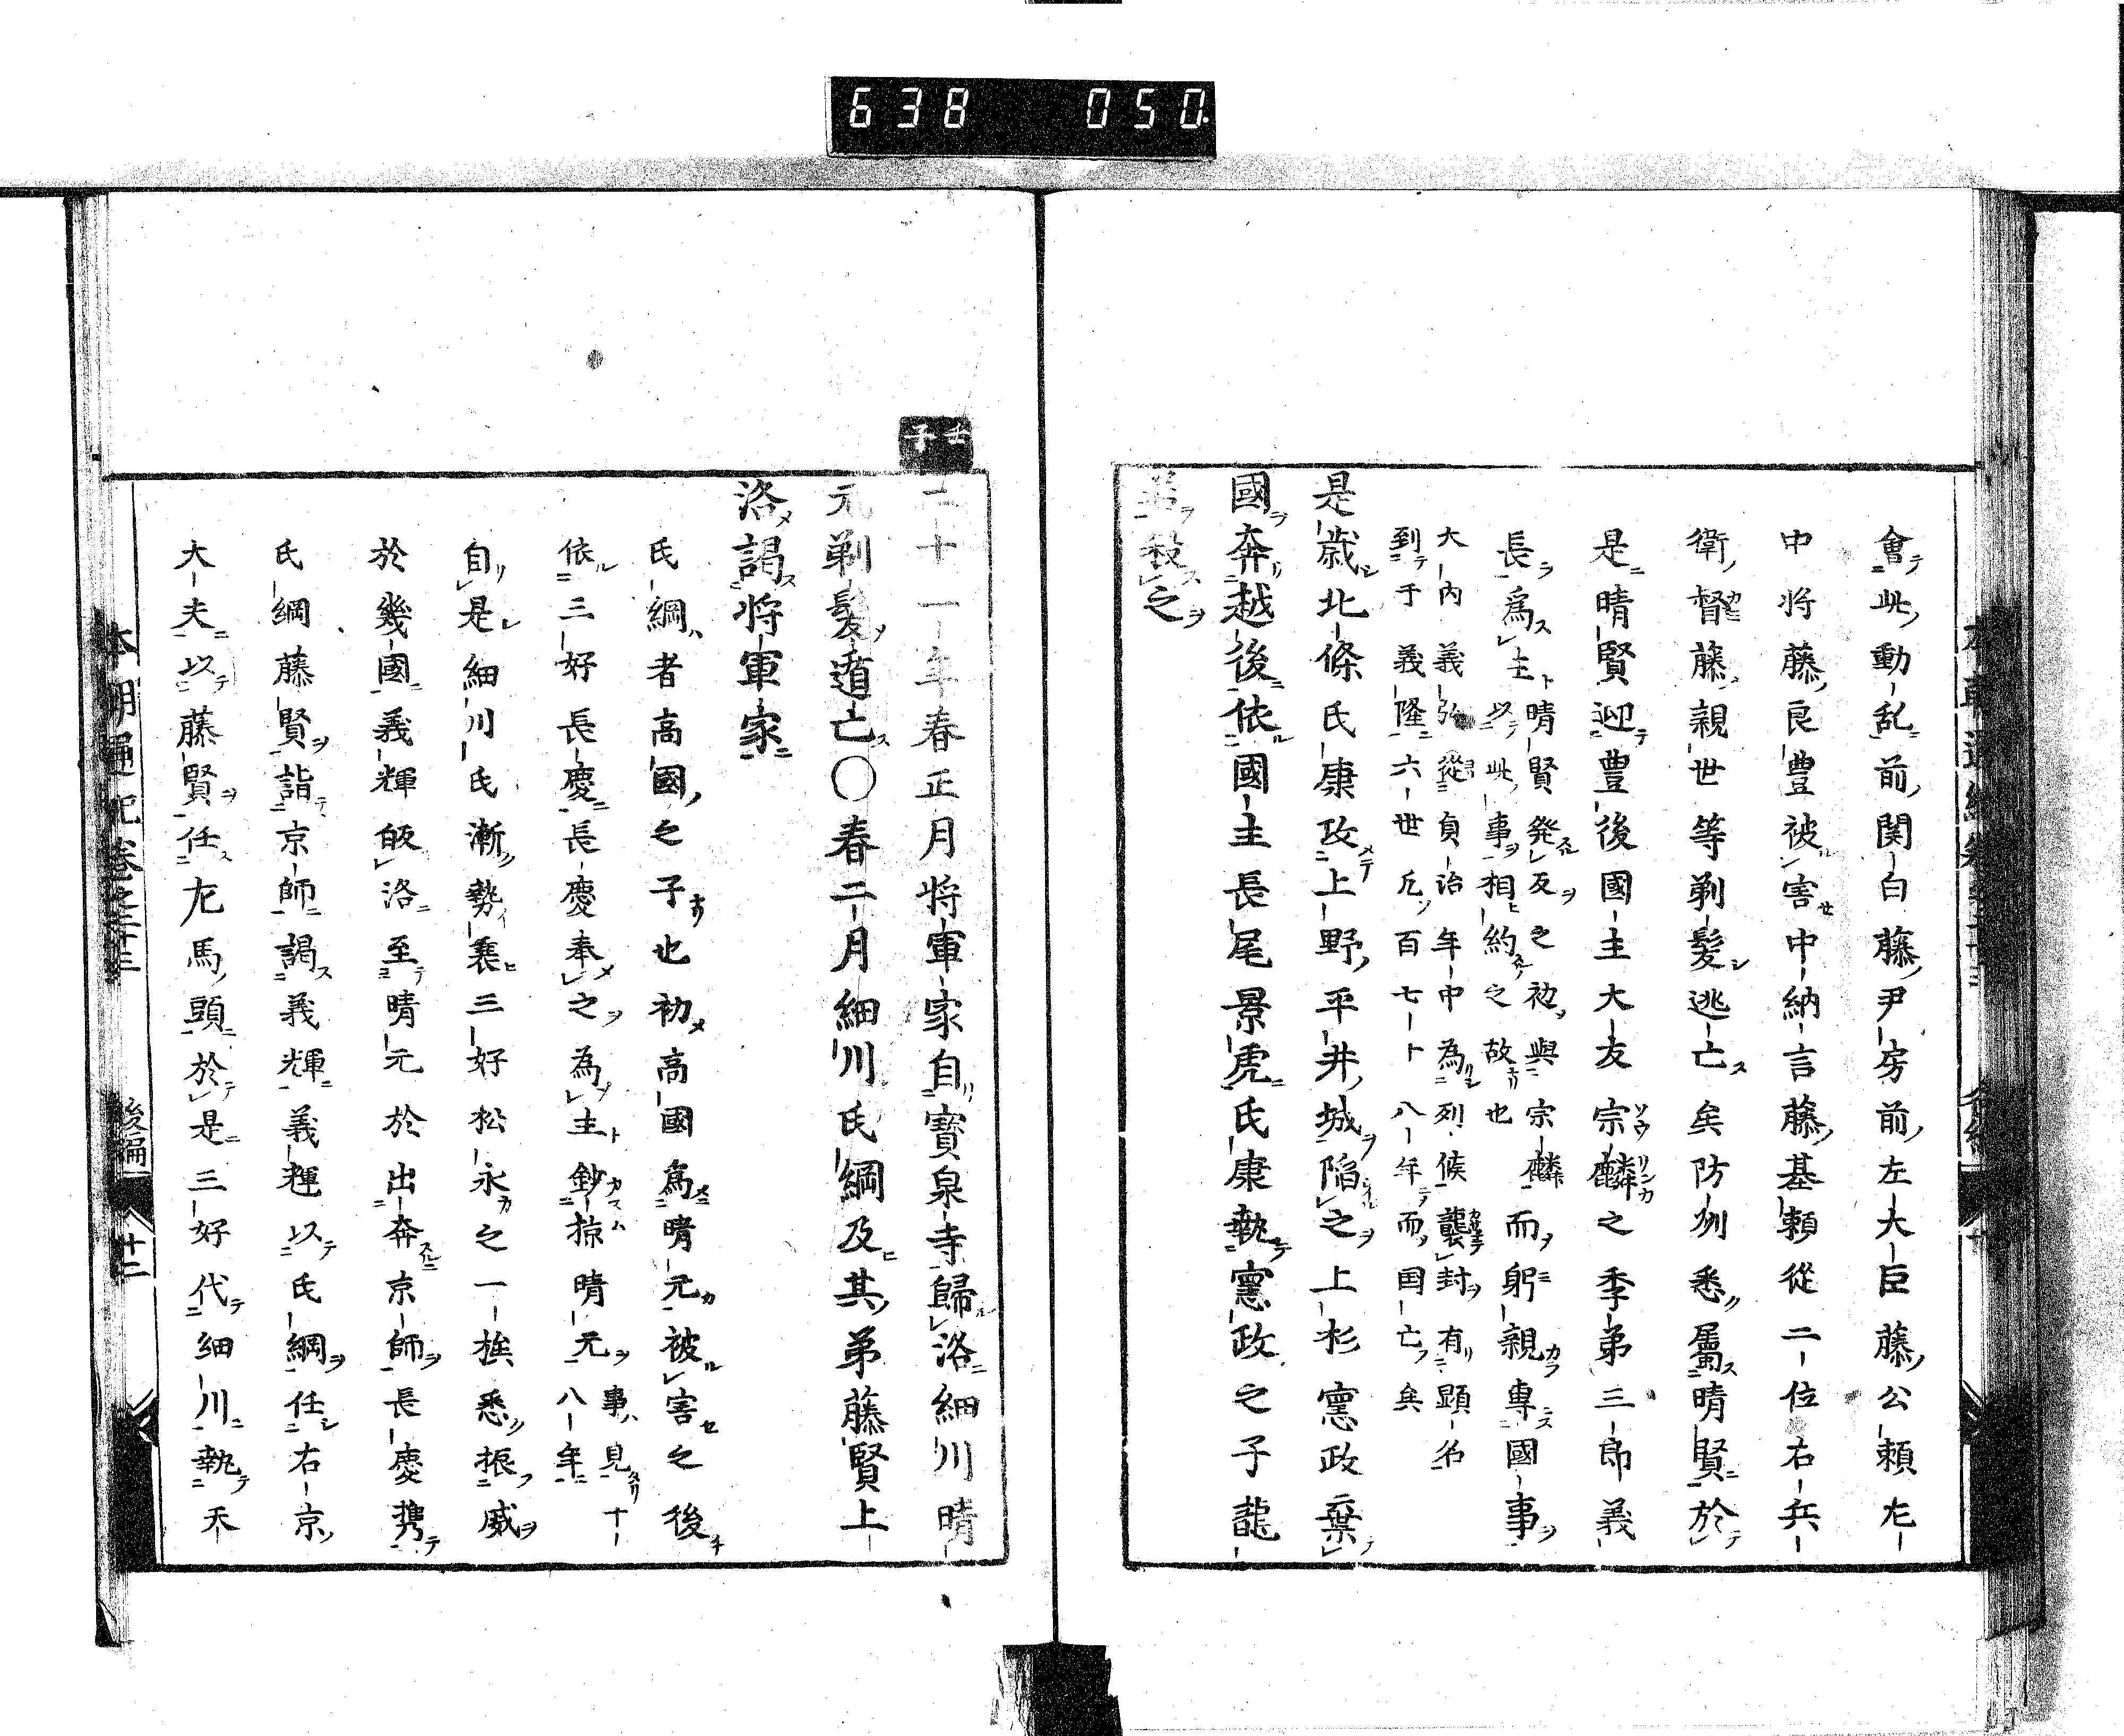 638 050
會此動乱前関白藤尹房前左大臣藤公頼左
中将藤良豊被害中納言藤基頼從二位右兵
衛督藤親世等剃髪逃亡矣防州悉屬晴賢於
是晴賢迎豊後國主大友宗麟之季弟三郎義
長爲主晴賢発反之初與宗麟而躬親專國事
以此事相約之故也
大内義弘從貞治年中為列候襲封有顕名
到于義隆六世凡百七十八年而国亡矣
是歳北條氏康攻上野平井城陥之上杉憲政棄
國奔越後依國主長尾景虎氏康執憲政之子龍
若殺之
本朝通紀卷之二十三 後編
壬子
二十一年春正月将軍家自寳泉寺歸洛細川晴
元剃髪遁亡〇春二月細川氏綱及其弟藤賢上
洛謁将軍家
氏綱者髙國之子也初髙國爲晴元被害之後
依三好長慶長慶奉之為主鈔掠晴元事見十
八年
自是細川氏漸勢衰三好松永之一族悉振威
於幾國義輝皈洛至晴元於出奔京師長慶携
氏綱藤賢詣京師謁義輝義輝以氏綱任右京
大夫以藤賢任左馬頭於是三好代細川執天
本朝通紀卷之二十三 後編 廿二